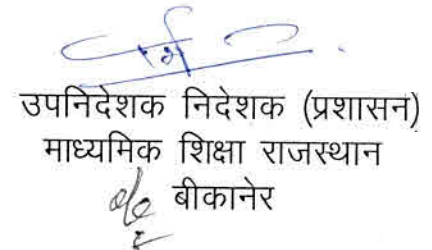 उपनिदेशक निदेशक (प्रशासन)
माध्यमिक शिक्षा राजस्थान
बीकानेर